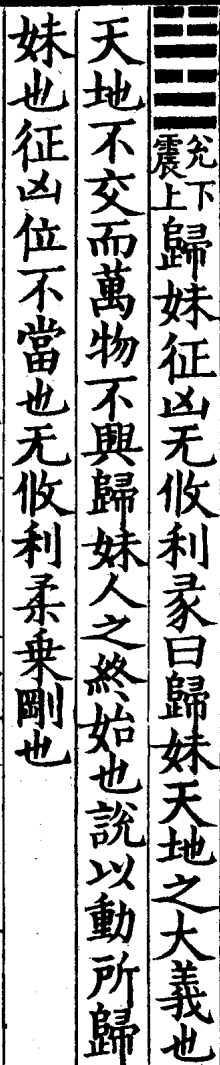 ䷵兌下震上歸妹征凶无攸利彖曰歸妹天地之大義也
天地不交而萬物不興歸妹人之終始也說以動所歸
妹也征凶位不當也无攸利柔乗剛也